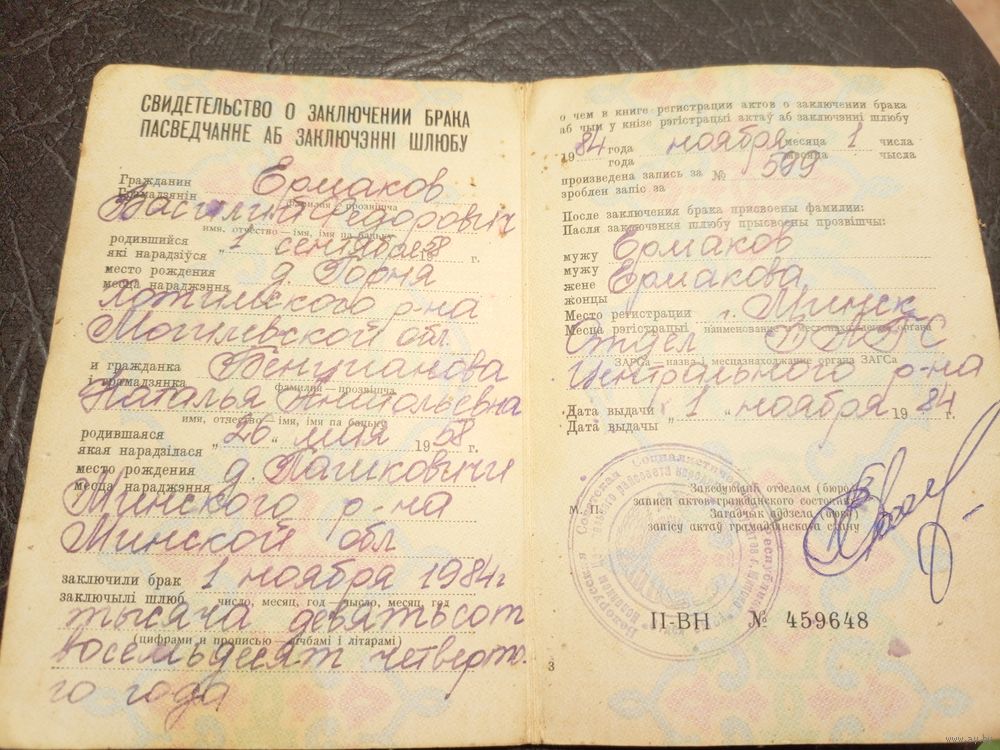 СВИДЕТЕЛЬСТВО О ЗАКЛЮЧЕНИИ БРАКА
ПАСВЕДЧАННЕ АБ ЗАКЛЮЧЭННІ ШЛЮБУ
Гражданин Ермаков
Грамадзянін
фамилия – прозвішча
Василий Федорович
имя, отчество — імя, імя па бацьку
родившийся „1 сентября 1958 г.
які нарадзіўся
место рождения д. Горня
месца нараджэння
Хотимского р-на
Могилевской обл
и гражданка
і грамадзянка
фамилия – прозвішча
Наталья Анатольевна
имя, отчество — імя, імя па бацьку
родившаяся „26“ мая 1958 г.
якая нарадзілася
место рождения д. Пашковичи
месца нараджэння
Минского р-на
Минской обл
заключили брак 1 ноября 1984 г
заключылі шлюб
число, месяц, год — чысло, месяц, год
тысяча девятьсот
(цифрами и прописью — лічбамі і літарамі)
восемьдесят четверто-
го года
о чем в книге регистрации актов о заключении брака
аб чым у кнізе рэгістрацыі актаў аб заключэнні шлюбу
1984 года ноября месяца 1 числа
года месяца чысла
произведена запись за №
зроблен запіс за
После заключения брака присвоены фамилии:
Пасля заключэння шлюбу прысвоены прозвішчы:
мужу Ермаков
мужу
жене Ермакова
жонцы
Место регистрации г. Минск
Месца рэгістрацыі
наименование и местонахождение органа
Отдел ЗАГС
ЗАГСа — назва і месцазнаходжанне органа ЗАГСа
Центрального р-на
Дата выдачи „1“ ноября 1984 г.
Дата выдачы
Заведующий отделом (бюро)
записи актов гражданского состояния
М. П.
Загадчык аддзела (бюро)
запісу актаў грамадзянскага стану
II-ВН № 459648
3
www.ay.by